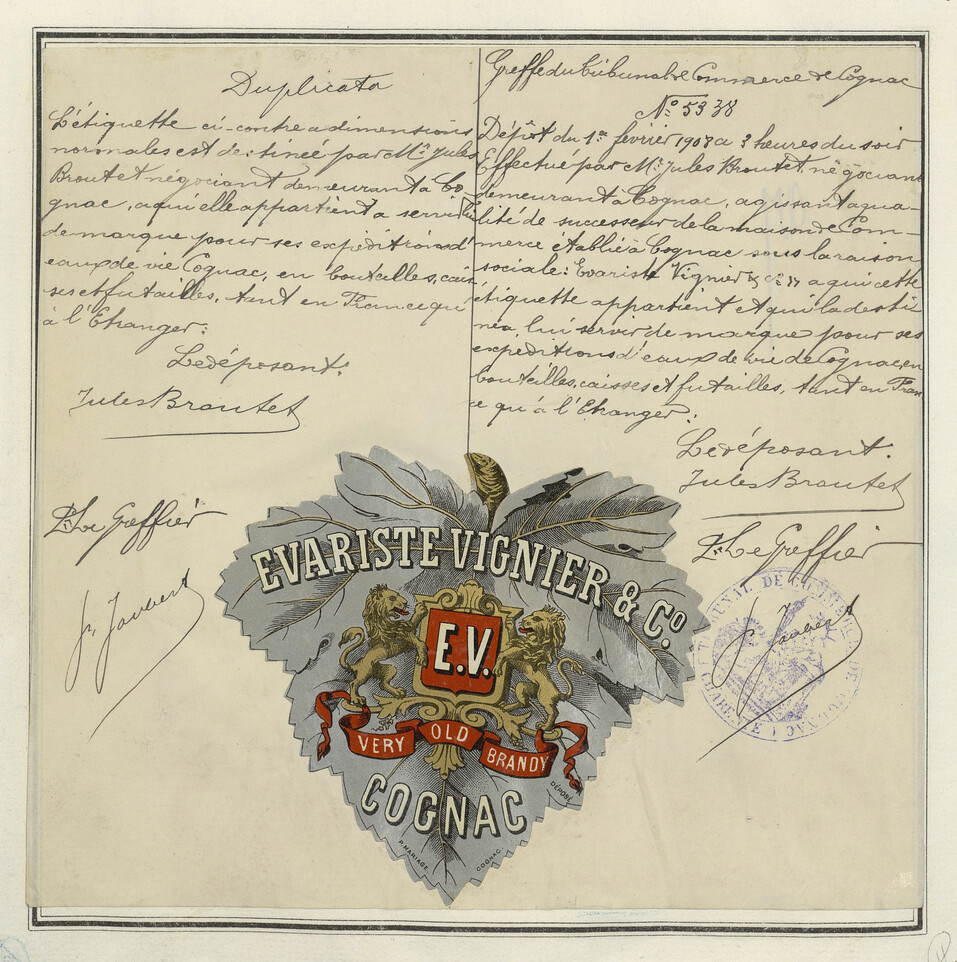 Duplicata
L'étiquette ci-contre a dimensions
normales est destinée par Mr. Jules
Broutet négociant demeurant à Co
gnac, a qui elle appartient a servir
de marque pour ses expéditions d'
eaux de vie Cognac, en bouteilles, cais
ses et futailles, tant en France qu'
à l'Etranger.
Le déposant.
Jules Broutet
Pr. Le Greffier
Jaubert
Greffe du Tribunal de Commerce de Cognac
No. 5338
Dépôt du 1er février 1908 a 3 heures du soir
Effectué par Mr. Jules Broutet, négociant
demeurant à Cognac, agissant a qua-
lité de successeur de la maison de Com-
merce établie à Cognac sous la raison
sociale: Evariste Vignier & Cie " a qui cette
étiquette appartient et qui la desti
née, lui servir de marque pour ses
expéditions d'eaux de vie de Cognac, en
bouteilles, caisses et futailles, tant en Fran
ce qu'à l'Etranger.
Le déposant.
Jules Broutet
Pr. Le Greffier
Jaubert
TRIBUNAL DE COMMERCE DE COGNAC (CHARENTE)
EVARISTE VIGNIER & Co.
E.V.
VERY OLD BRANDY
DÉPOSÉ
COGNAC
P. MARIAGE. COGNAC.